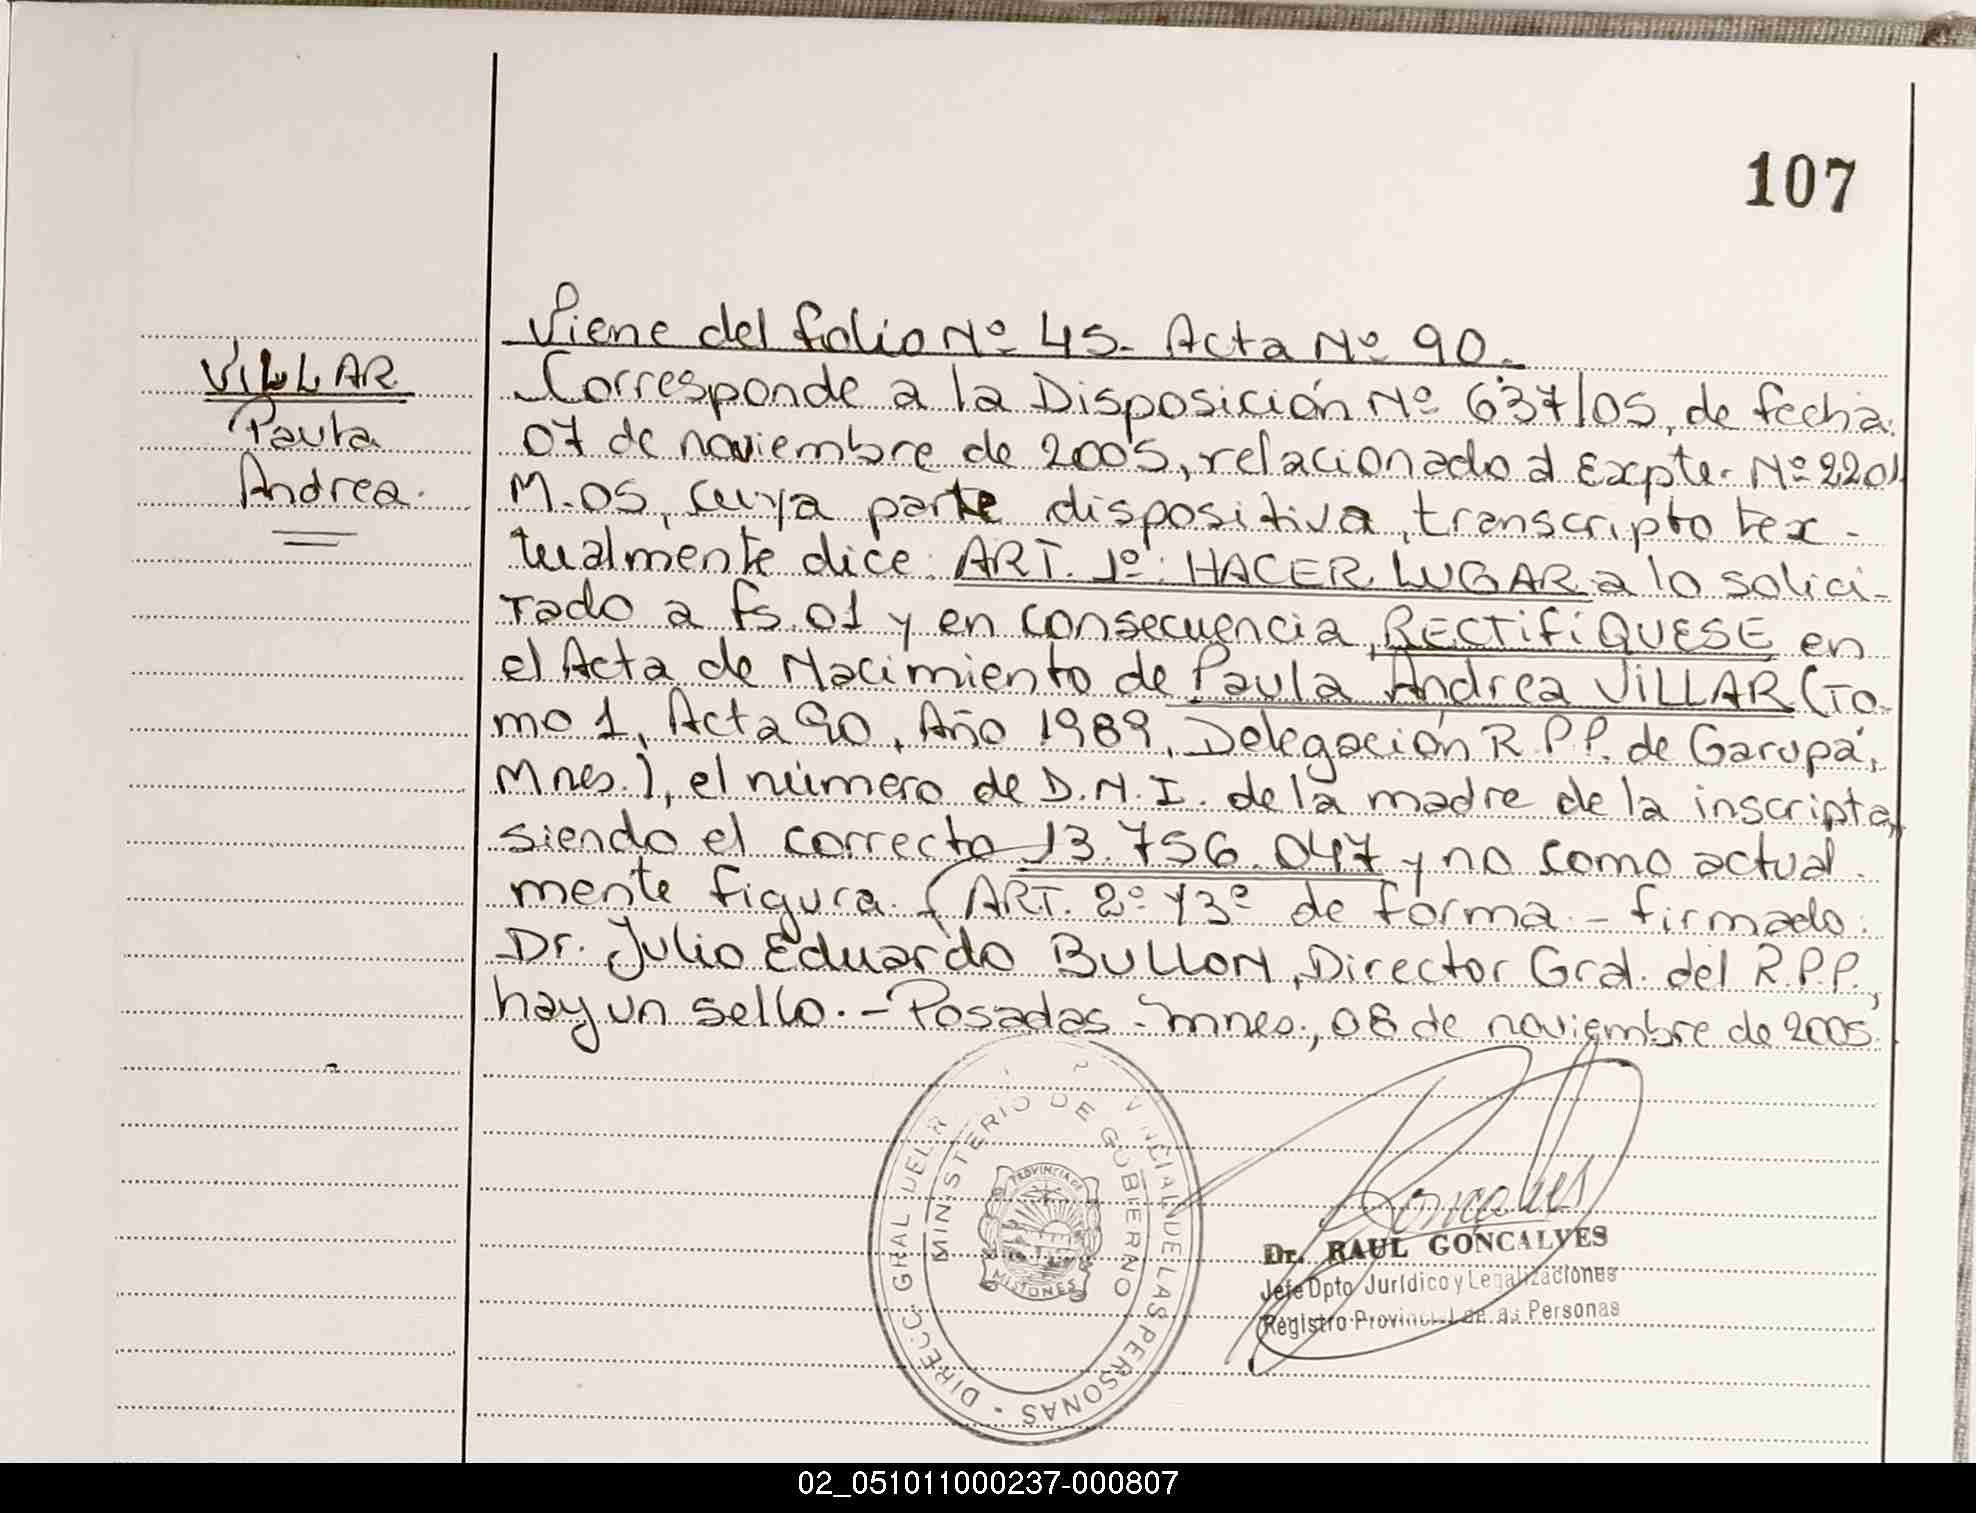 107
Viene del folio Nº 45. Acta Nº 90.
VILLAR
Paula
Andrea.
Corresponde a la Disposición Nº 637/05, de fecha
07 de noviembre de 2005, relacionado al Expte. Nº 2201
M.05, cuya parte dispositiva, transcripto tex-
tualmente dice: ART. 1º: HACER LUGAR a lo solici-
tado a fs. 01 y en consecuencia, RECTIFÍQUESE en
el Acta de Nacimiento de Paula Andrea VILLAR (To-
mo 1, Acta 90, Año 1989, Delegación R.P.P. de Garupá,
Mnes.), el número de D.N.I. de la madre de la inscripta,
siendo el correcto 13.756.047 y no como actual-
mente figura. ART. 2º y 3º de forma.- firmado:
Dr. Julio Eduardo BULLON, Director Gral. del R.P.P.,
hay un sello.- Posadas - Mnes., 08 de noviembre de 2005.
MINISTERIO DE GOBIERNO
PROVINCIA DE
MISIONES
DE LAS PERSONAS - DIRECC. GRAL DEL
Goncalves
Dr. RAUL GONCALVES
Jefe Dpto Jurídico y Legalizaciones
Registro Provincial de las Personas
02_051011000237-000807